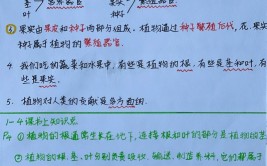 叶 蔬菜 果实
③ 果实由果皮和种子两部分组成。植物通过种子繁殖后代，花、果实
种子属于植物的繁殖器官。
4. 我们吃的蔬菜和水果中，有些是植物的根，有些是茎和叶，有
些是果实。
5. 植物对人类的贡献是多方面的。
1-4课社知识点
P4 ① 植物的根通常生长在地下，连接根和叶的部分是植物的茎
② 植物的根、茎、叶分别负责吸收、输送、制造养料，它们都属于